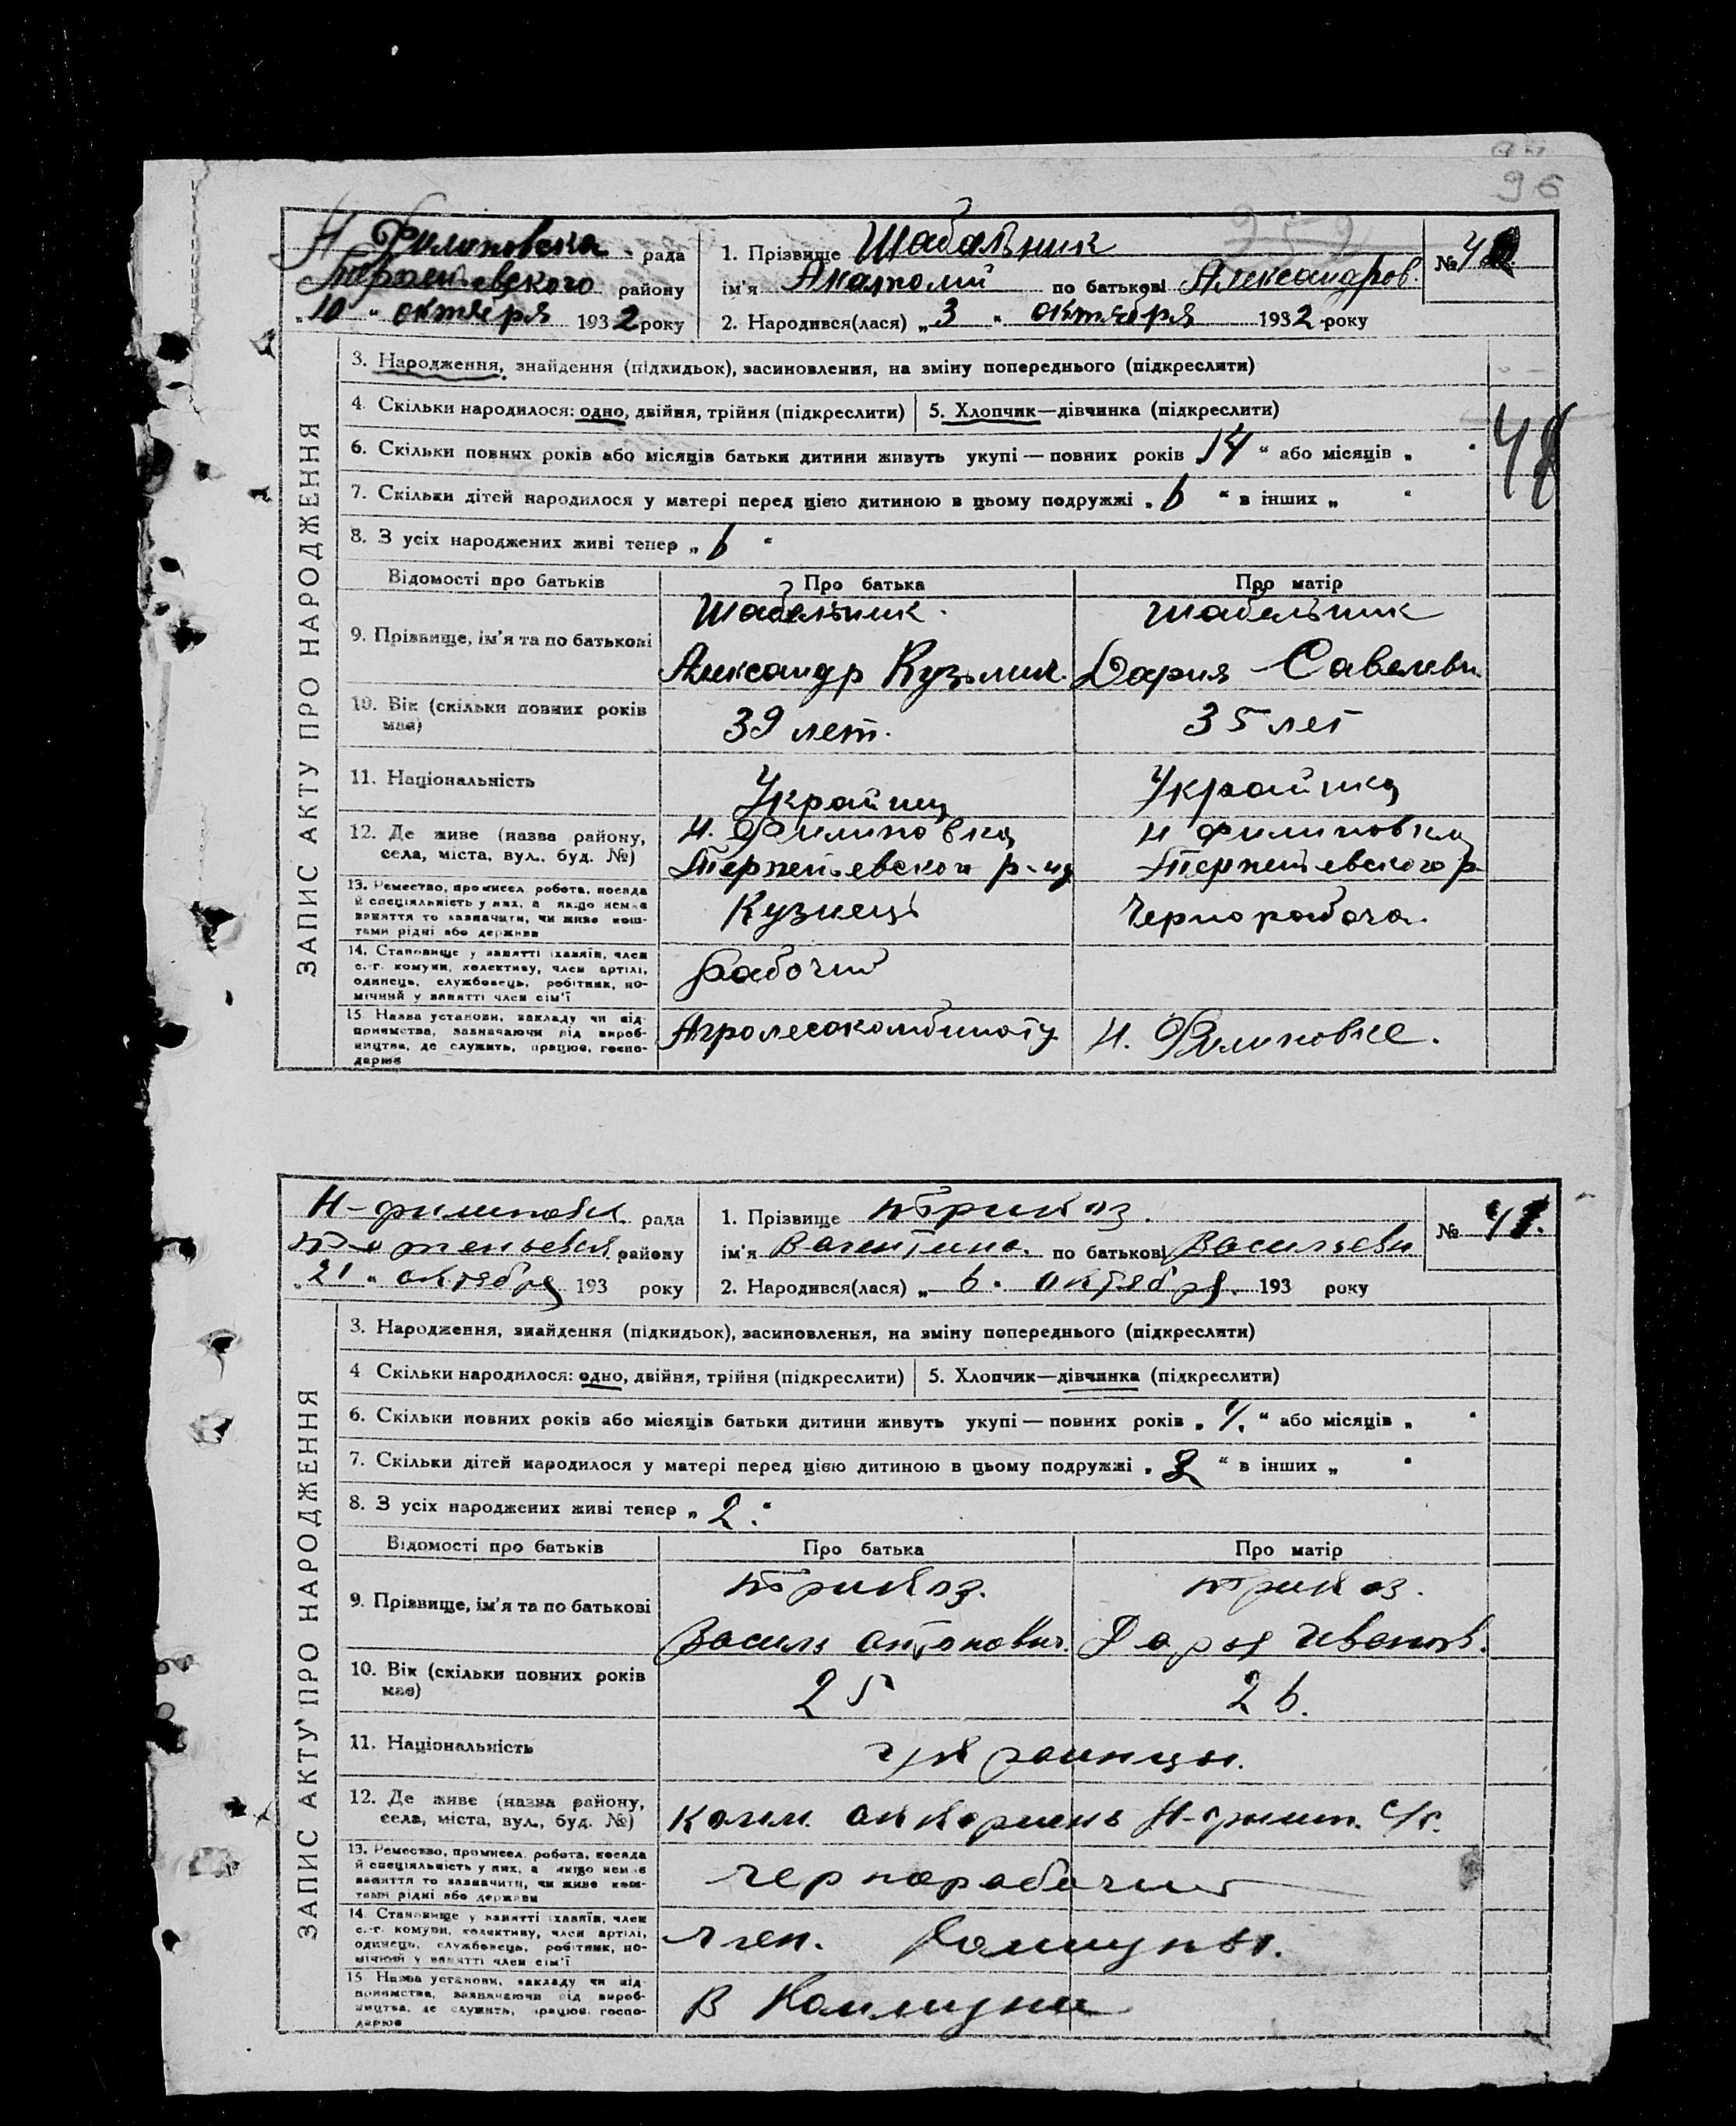 96
Н Филиповска рада
Терпеньевского району
„10“ октября 1932 року
1. Прізвище Шабельник
ім'я Анатолий по батькові Александров.
2. Народився(лася) „3“ октября 1932 року
№ 4
ЗАПИС АКТУ ПРО НАРОДЖЕННЯ
3. Народження, знайдення (підкидьок), засиновлення, на зміну попереднього (підкреслити)
4. Скільки народилося: одно, двійня, трійня (підкреслити) 5. Хлопчик—дівчинка (підкреслити)
48
6. Скільки повних років або місяців батьки дитини живуть укупі — повних років „14“ або місяців „ “
7. Скільки дітей народилося у матері перед цією дитиною в цьому подружжі „6“ в інших „ “
8. З усіх народжених живі тепер „6“
Відомості про батьків Про батька Про матір
9. Прізвище, ім'я та по батькові
Шабельник Шабельник
Александр Кузьмич. Дария Савельевн.
10. Вік (скільки повних років має)
39 лет. 35 лет
11. Національність
Украйнец Украйнка
12. Де живе (назва району, села, міста, вул., буд. №)
Н. Филиповка Н Филиповка
Терпеньевского р-на Терпеньевского р.
13. Ремество, промисел, робота, посада й спеціяльність у них, а якщо немає заняття то зазначити, чи живе коштами рідні або держави
Кузнець Чернорабоча.
14. Становище у занятті (хазяїн, член с.-г. комуни, колективу, член артілі, одинець, службовець, робітник, помічний у занятті член сім'ї
Рабочий
15. Назва установи, закладу чи підприємства, зазначаючи рід виробництва, де служить, працює, господарює
Агролесокомбинату Н. Филиповке.
Н-филиповск. рада
району
„21“ октября 193 року
1. Прізвище Трикоз.
ім'я Валентина. по батькові Васильевн
2. Народився(лася) „6“ октября. 193 року
№ 4
ЗАПИС АКТУ ПРО НАРОДЖЕННЯ
3. Народження, знайдення (підкидьок), засиновлення, на зміну попереднього (підкреслити)
4 Скільки народилося: одно, двійня, трійня (підкреслити) 5. Хлопчик—дівчинка (підкреслити)
6. Скільки повних років або місяців батьки дитини живуть укупі — повних років „ “ або місяців „ “
7. Скільки дітей народилося у матері перед цією дитиною в цьому подружжі „2“ в інших „ “
8. З усіх народжених живі тепер „2.“
Відомості про батьків Про батька Про матір
9. Прізвище, ім'я та по батькові
Трикоз. Трикоз.
Василь Антонович. Дарья Иванов.
10. Вік (скільки повних років має)
25 26.
11. Національність
украинцы.
12. Де живе (назва району, села, міста, вул., буд. №)
Н-филип. С/с.
13. Ремество, промисел, робота, посада й спеціяльність у них, а якщо немає заняття то зазначити, чи живе коштами рідні або держави
чернорабочий
14. Становище у занятті (хазяїн, член с.-г. комуни, колективу, член артілі, одинець, службовець, робітник, помічний у занятті член сім'ї
член. Коммуны.
15. Назва установи, закладу чи підприємства, зазначаючи рід виробництва, де служить, працює, господарює
В Коммуне